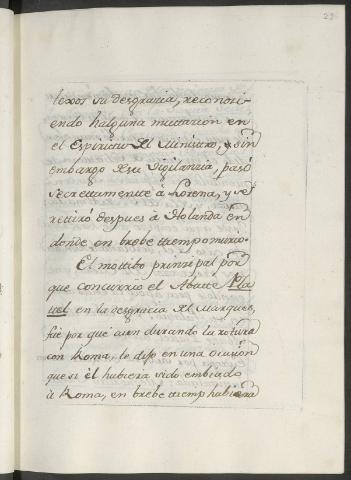 29
lexos su desgrazia, reconosi-
endo halguna muttazion en
el Espiritu del Ministro, y sin
embargo de su Vigilanzia, pasó
Secrettamentte à Lorena, y se
retiró despues à Holanda en
donde en brebe ttiempo murio.
El mottibo prinzipal por
que concurrio el Abatte Fla
uel en la desgrazia del Marques,
fue por que aun durando la rotura
con Roma, le dijo en una ocasion
que si èl hubiera sido embiado
à Roma, en brebe ttiemp hubiera